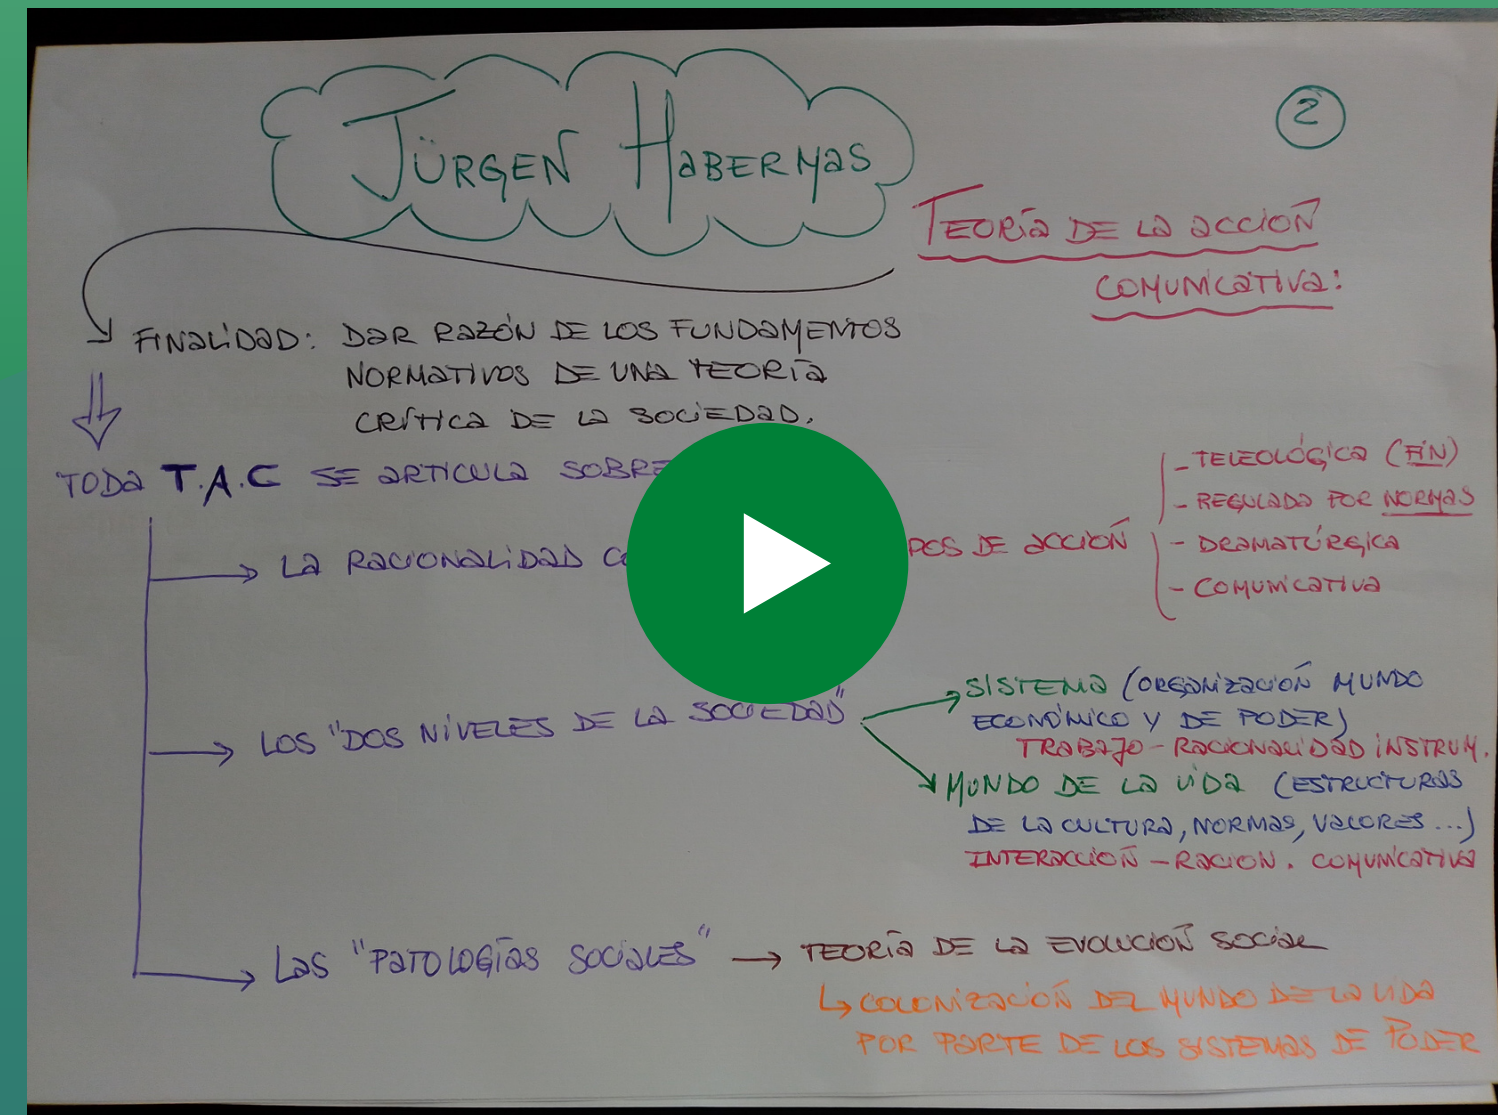 JÜRGEN HABERMAS
2
TEORÍA DE LA ACCIÓN
COMUNICATIVA:
FINALIDAD: DAR RAZÓN DE LOS FUNDAMENTOS
NORMATIVOS DE UNA TEORÍA
CRÍTICA DE LA SOCIEDAD.
TODA T.A.C SE ARTICULA SOBRE
LA RACIONALIDAD
DE ACCIÓN
- TELEOLÓGICA (FIN)
- REGULADA POR NORMAS
- DRAMATÚRGICA
- COMUNICATIVA
LOS "DOS NIVELES DE LA SOCIEDAD"
SISTEMA (ORGANIZACIÓN MUNDO
ECONÓMICO Y DE PODER)
TRABAJO - RACIONALIDAD INSTRUM.
MUNDO DE LA VIDA (ESTRUCTURAS
DE LA CULTURA, NORMAS, VALORES...)
INTERACCIÓN - RACION. COMUNICATIVA
LAS "PATOLOGÍAS SOCIALES" → TEORÍA DE LA EVOLUCIÓN SOCIAL
↳ COLONIZACIÓN DEL MUNDO DE LA VIDA
POR PARTE DE LOS SISTEMAS DE PODER